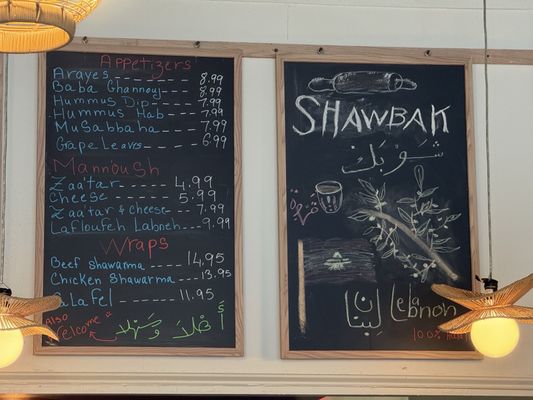 Appetizers
Arayes ----- 8.99
Baba Ghannouj --- 8.99
Hummus Dip ---- 7.99
Hummus Hab --- 7.99
Musabbaha --- 7.99
Grape Leaves --- 6.99
Mannoush
Zaatar ------ 4.99
Cheese ------ 5.99
Zaatar & cheese --- 7.99
Lafloufeh Labneh --- 9.99
Wraps
Beef Shawarma ---- 14.95
Chicken Shawarma --- 13.95
Falafel ------ 11.95
also
Welcome
أهلاً وسهلا
SHAWBAK
شوبك
Lebanon
لبنان
100%